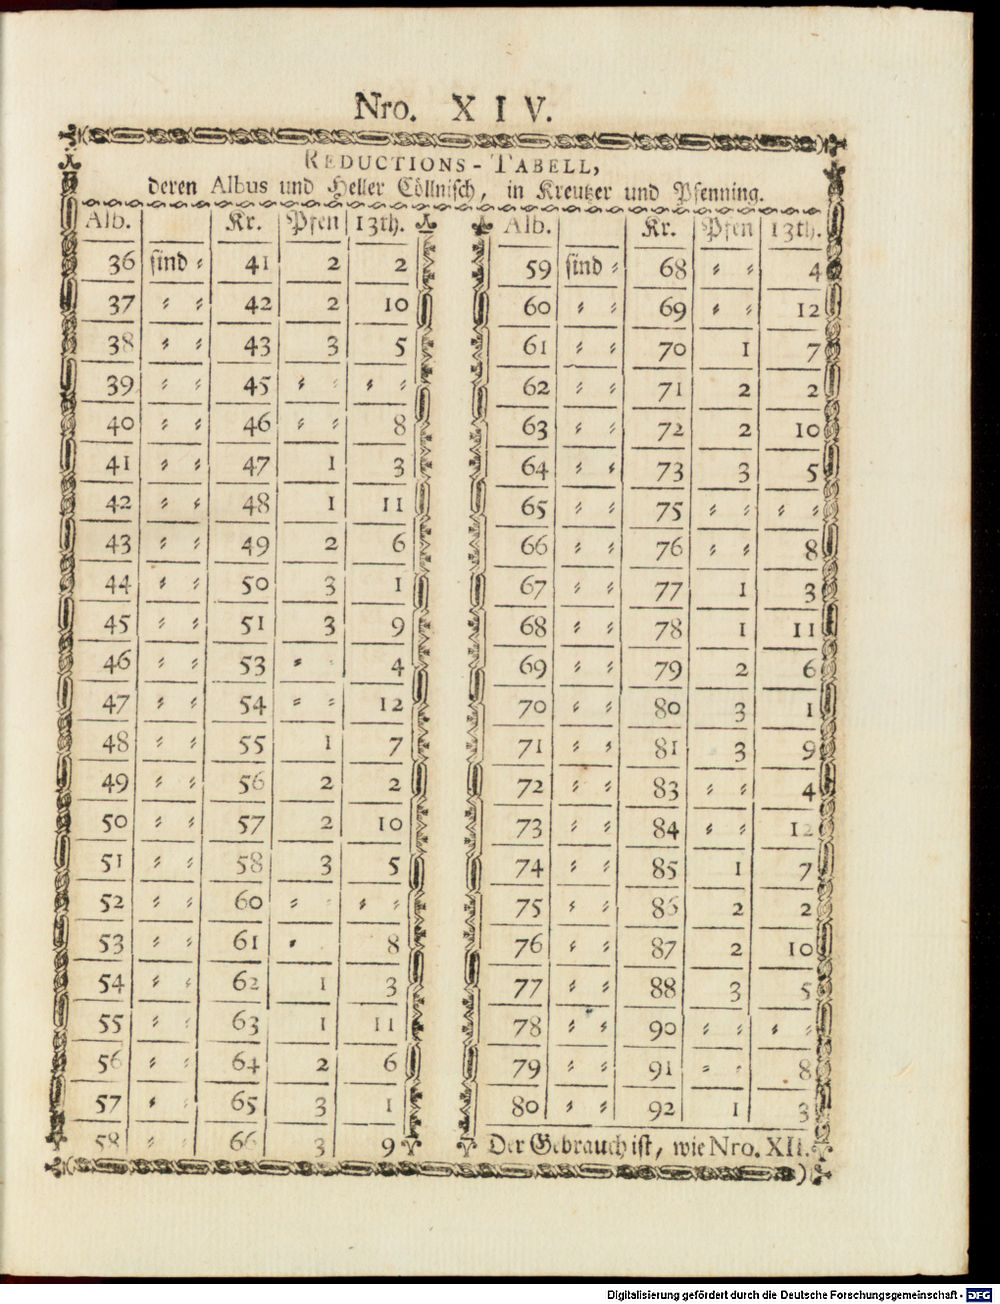 Nro. X I V.
REDUCTIONS-TABELL,
deren Albus und Heller Cöllnisch, in Kreutzer und Pfenning.
Alb. Kr. Pfen 13th.
36 sind ⸗ 41 2 2
37 ⸗ ⸗ 42 2 10
38 ⸗ ⸗ 43 3 5
39 ⸗ ⸗ 45 ⸗ ⸗ ⸗ ⸗
40 ⸗ ⸗ 46 ⸗ ⸗ 8
41 ⸗ ⸗ 47 1 3
42 ⸗ ⸗ 48 1 11
43 ⸗ ⸗ 49 2 6
44 ⸗ ⸗ 50 3 1
45 ⸗ ⸗ 51 3 9
46 ⸗ ⸗ 53 ⸗ ⸗ 4
47 ⸗ ⸗ 54 ⸗ ⸗ 12
48 ⸗ ⸗ 55 1 7
49 ⸗ ⸗ 56 2 2
50 ⸗ ⸗ 57 2 10
51 ⸗ ⸗ 58 3 5
52 ⸗ ⸗ 60 ⸗ ⸗ ⸗ ⸗
53 ⸗ ⸗ 61 ⸗ 8
54 ⸗ ⸗ 62 1 3
55 ⸗ ⸗ 63 1 11
56 ⸗ ⸗ 64 2 6
57 ⸗ ⸗ 65 3 1
58 ⸗ ⸗ 66 3 9
Alb. Kr. Pfen 13th.
59 sind ⸗ 68 ⸗ ⸗ 4
60 ⸗ ⸗ 69 ⸗ ⸗ 12
61 ⸗ ⸗ 70 1 7
62 ⸗ ⸗ 71 2 2
63 ⸗ ⸗ 72 2 10
64 ⸗ ⸗ 73 3 5
65 ⸗ ⸗ 75 ⸗ ⸗ ⸗ ⸗
66 ⸗ ⸗ 76 ⸗ ⸗ 8
67 ⸗ ⸗ 77 1 3
68 ⸗ ⸗ 78 1 11
69 ⸗ ⸗ 79 2 6
70 ⸗ ⸗ 80 3 1
71 ⸗ ⸗ 81 3 9
72 ⸗ ⸗ 83 ⸗ ⸗ 4
73 ⸗ ⸗ 84 ⸗ ⸗ 12
74 ⸗ ⸗ 85 1 7
75 ⸗ ⸗ 86 2 2
76 ⸗ ⸗ 87 2 10
77 ⸗ ⸗ 88 3 5
78 ⸗ ⸗ 90 ⸗ ⸗ ⸗ ⸗
79 ⸗ ⸗ 91 ⸗ ⸗ 8
80 ⸗ ⸗ 92 1 3
Der Gebrauch ist, wie Nro. XII.
Digitalisierung gefördert durch die Deutsche Forschungsgemeinschaft - DFG